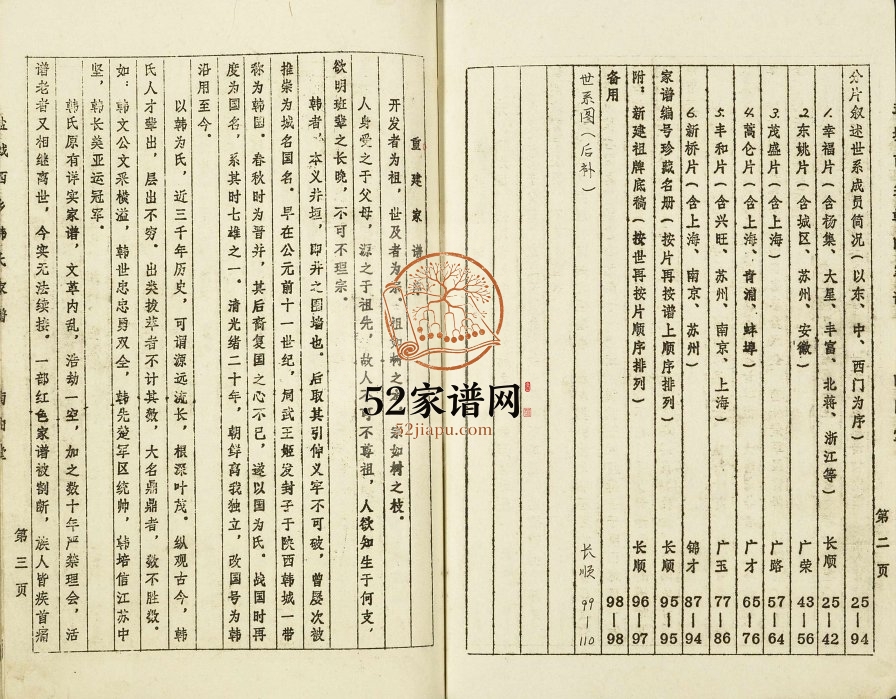 分片叙述世系成员简况(以东、中、西门为序) 25—94
1.幸福片(含杨集、大星、丰富、北蒋、浙江等) 长顺 25—42
2.东姚片(含城区、苏州、安徽) 广荣 43—56
3.茂盛片(含上海) 广路 57—64
4.万仓片(含上海、青浦、蚌埠) 广才 65—76
5.丰和片(含兴旺、苏州、南京、上海) 广玉 77—86
6.新桥片(含上海、南京、苏州) 锦才 87—94
家谱编号珍藏名册(按片再按谱上顺序排列) 长顺 95—95
附,新建祖牌底稿(按世再按片顺序排列) 长顺 96—97
备用 98—98
世系图(后补) 长顺 99—110
第二页
重建家谱
开发者为祖,世及者为宗。祖如树之 宗如树之枝。
人身受之于父母,源之于祖先,故人不可不尊祖,人欲知生于何支,
欲明班辈之长晚,不可不理宗。
韩者,本义井垣,即井之围墙也。后取其引伸义牢不可破,曾屡次被
推崇为城名国名。早在公元前十一世纪,周武王姬发封子于陕西韩城一带
称为韩国。春秋时为晋并,其后裔复国之心不已,遂以国为氏。战国时再
度为国名,系其时七雄之一。清光绪二十年,朝鲜离我独立,改国号为韩
沿用至今。
以韩为氏,近三千年历史,可谓源远流长,根深叶茂。纵观古今,韩
氏人才辈出,层出不穷。出类拔萃者不计其数,大名鼎鼎者,数不胜数。
如:韩文公文采横溢,韩世忠忠勇双全,韩先楚军区统帅,韩培信江苏中
坚,韩长美亚运冠军。
韩氏原有详实家谱,文革内乱,浩劫一空,加之数十年严禁理会,活
谱老者又相继离世,今实无法续接。一部红色家谱被割断,族人皆疾首痛
第三页
52家谱网
52jiapu.com